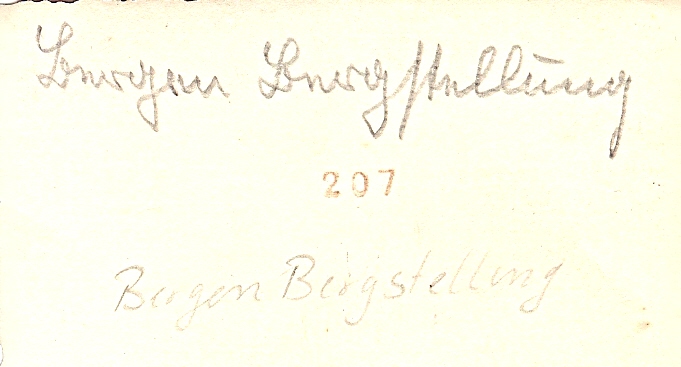 Bergen Bergstellung
207
Bergen Bergstellung